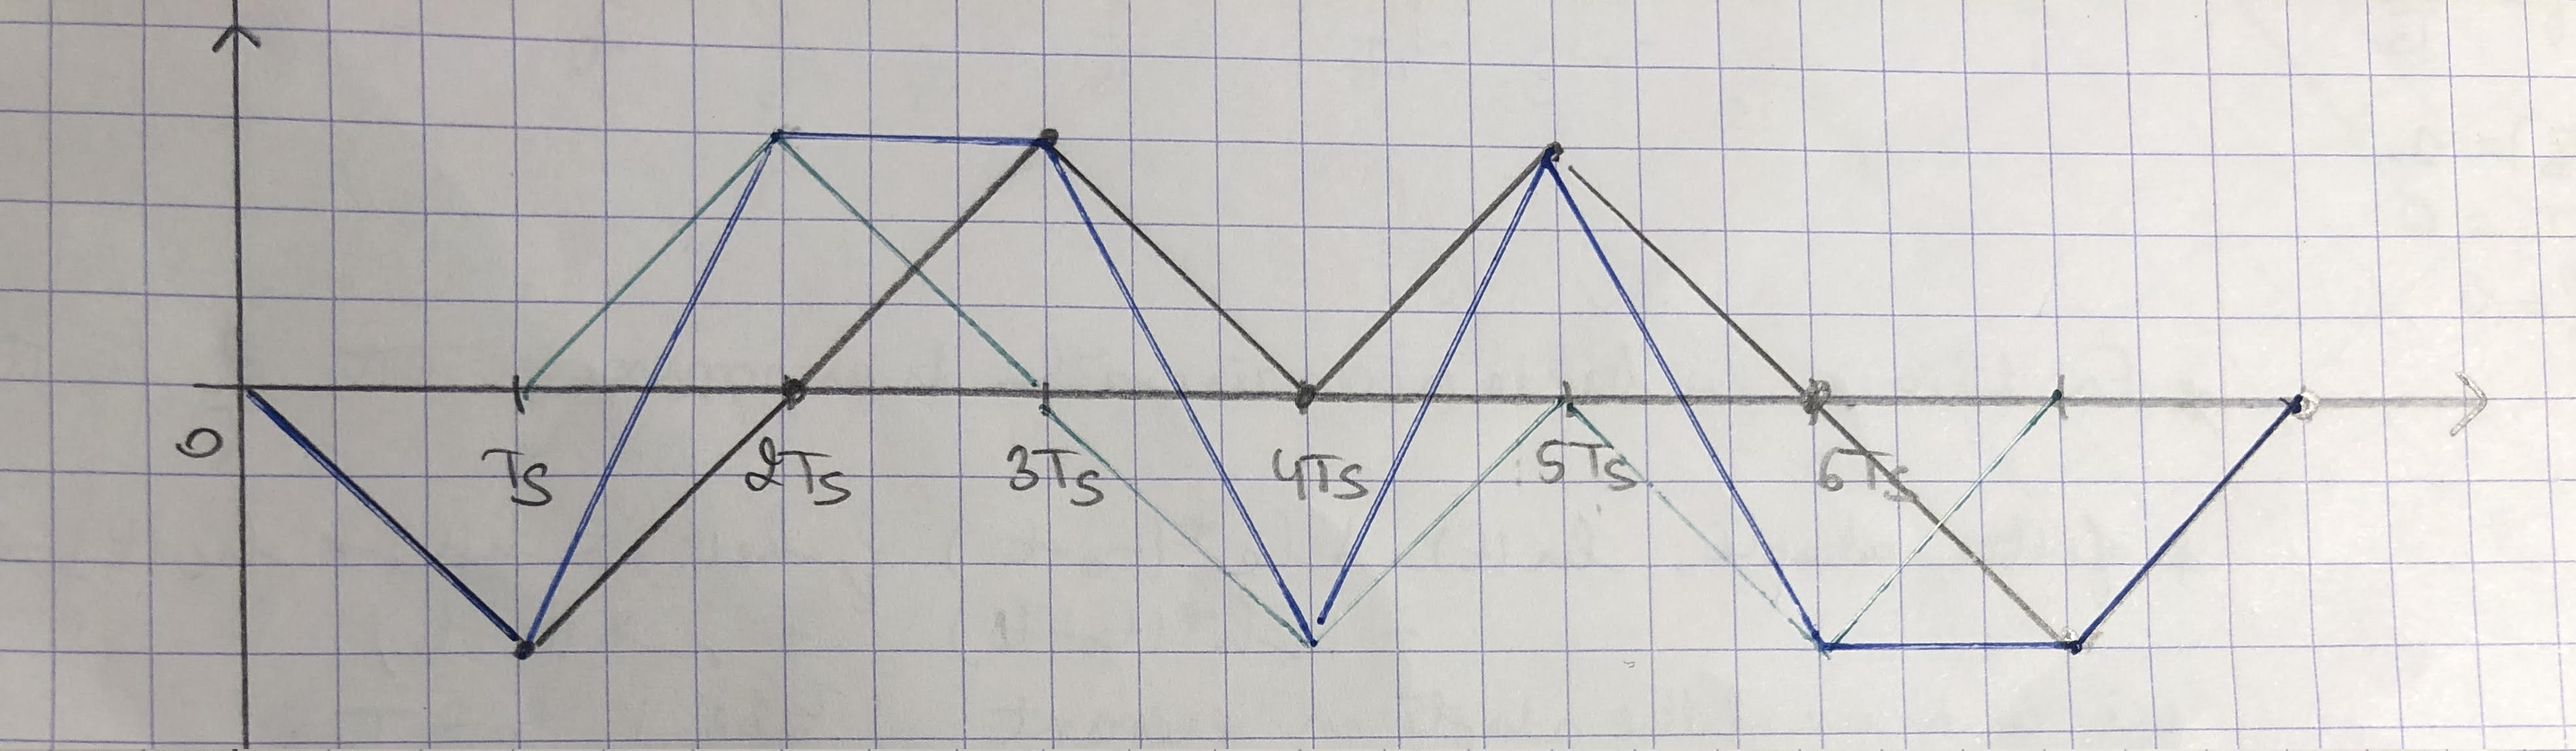 0 Ts 2Ts 3Ts 4Ts 5Ts 6Ts